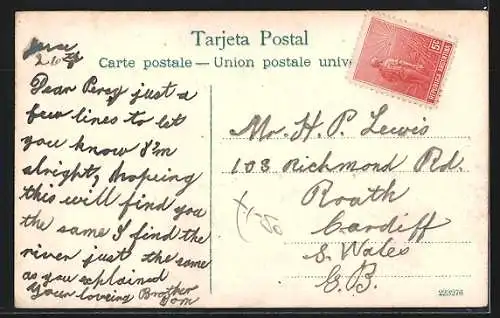 Tarjeta Postal
Carte postale — Union postale unive
June
26th
Dear Percy just a
few lines to let
you know I'm
alright, hopeing
this will find you
the same I find the
river just the same
as you explained
Your loveing Brother
Tom
5c
REPUBLICA ARGENTINA
Mr. H. P. Lewis
103 Richmond Rd.
Roath
Cardiff
S. Wales
G.B.
223276